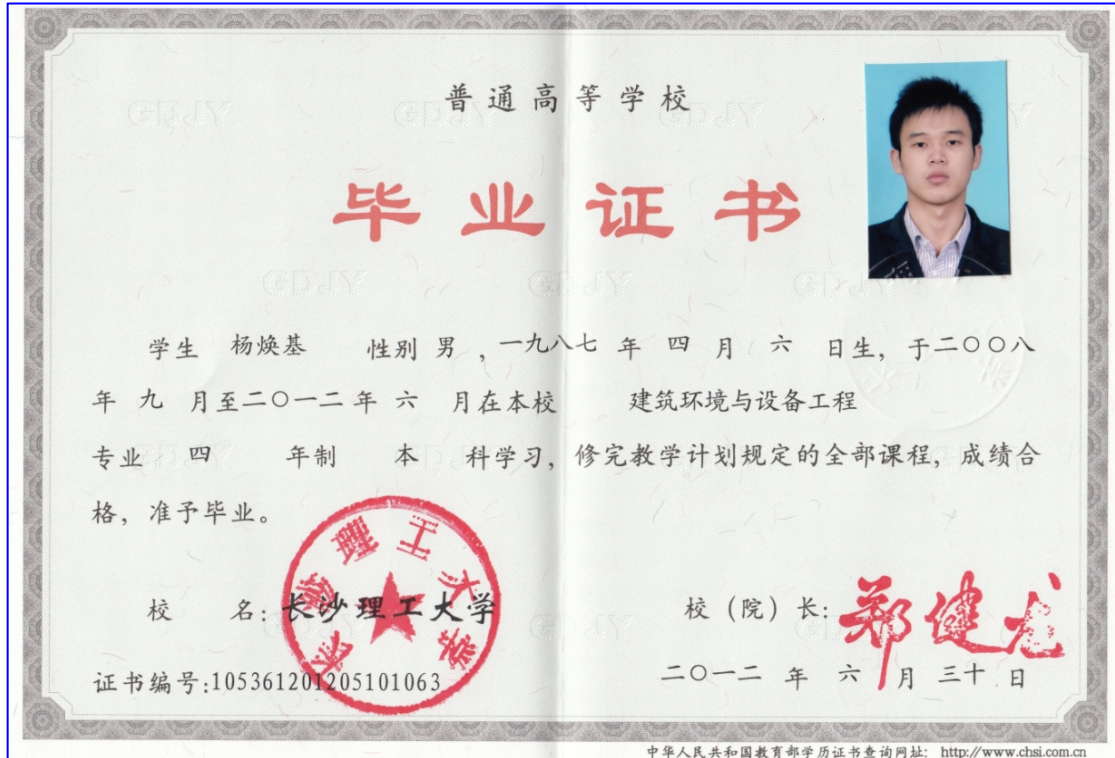 普通高等学校
毕业证书
学生 杨焕基 性别 男 , 一九八七 年 四 月 六 日生, 于二〇〇八
年 九 月至二〇一二 年 六 月在本校 建筑环境与设备工程
专业 四 年制 本 科学习, 修完教学计划规定的全部课程, 成绩合
格, 准予毕业。
校 名: 长沙理工大学
校 (院) 长: 郑健龙
证书编号:105361201205101063
二〇一二 年 六 月 三十 日
中华人民共和国教育部学历证书查询网址: http://www.chsi.com.cn
长沙理工大学
GDJY